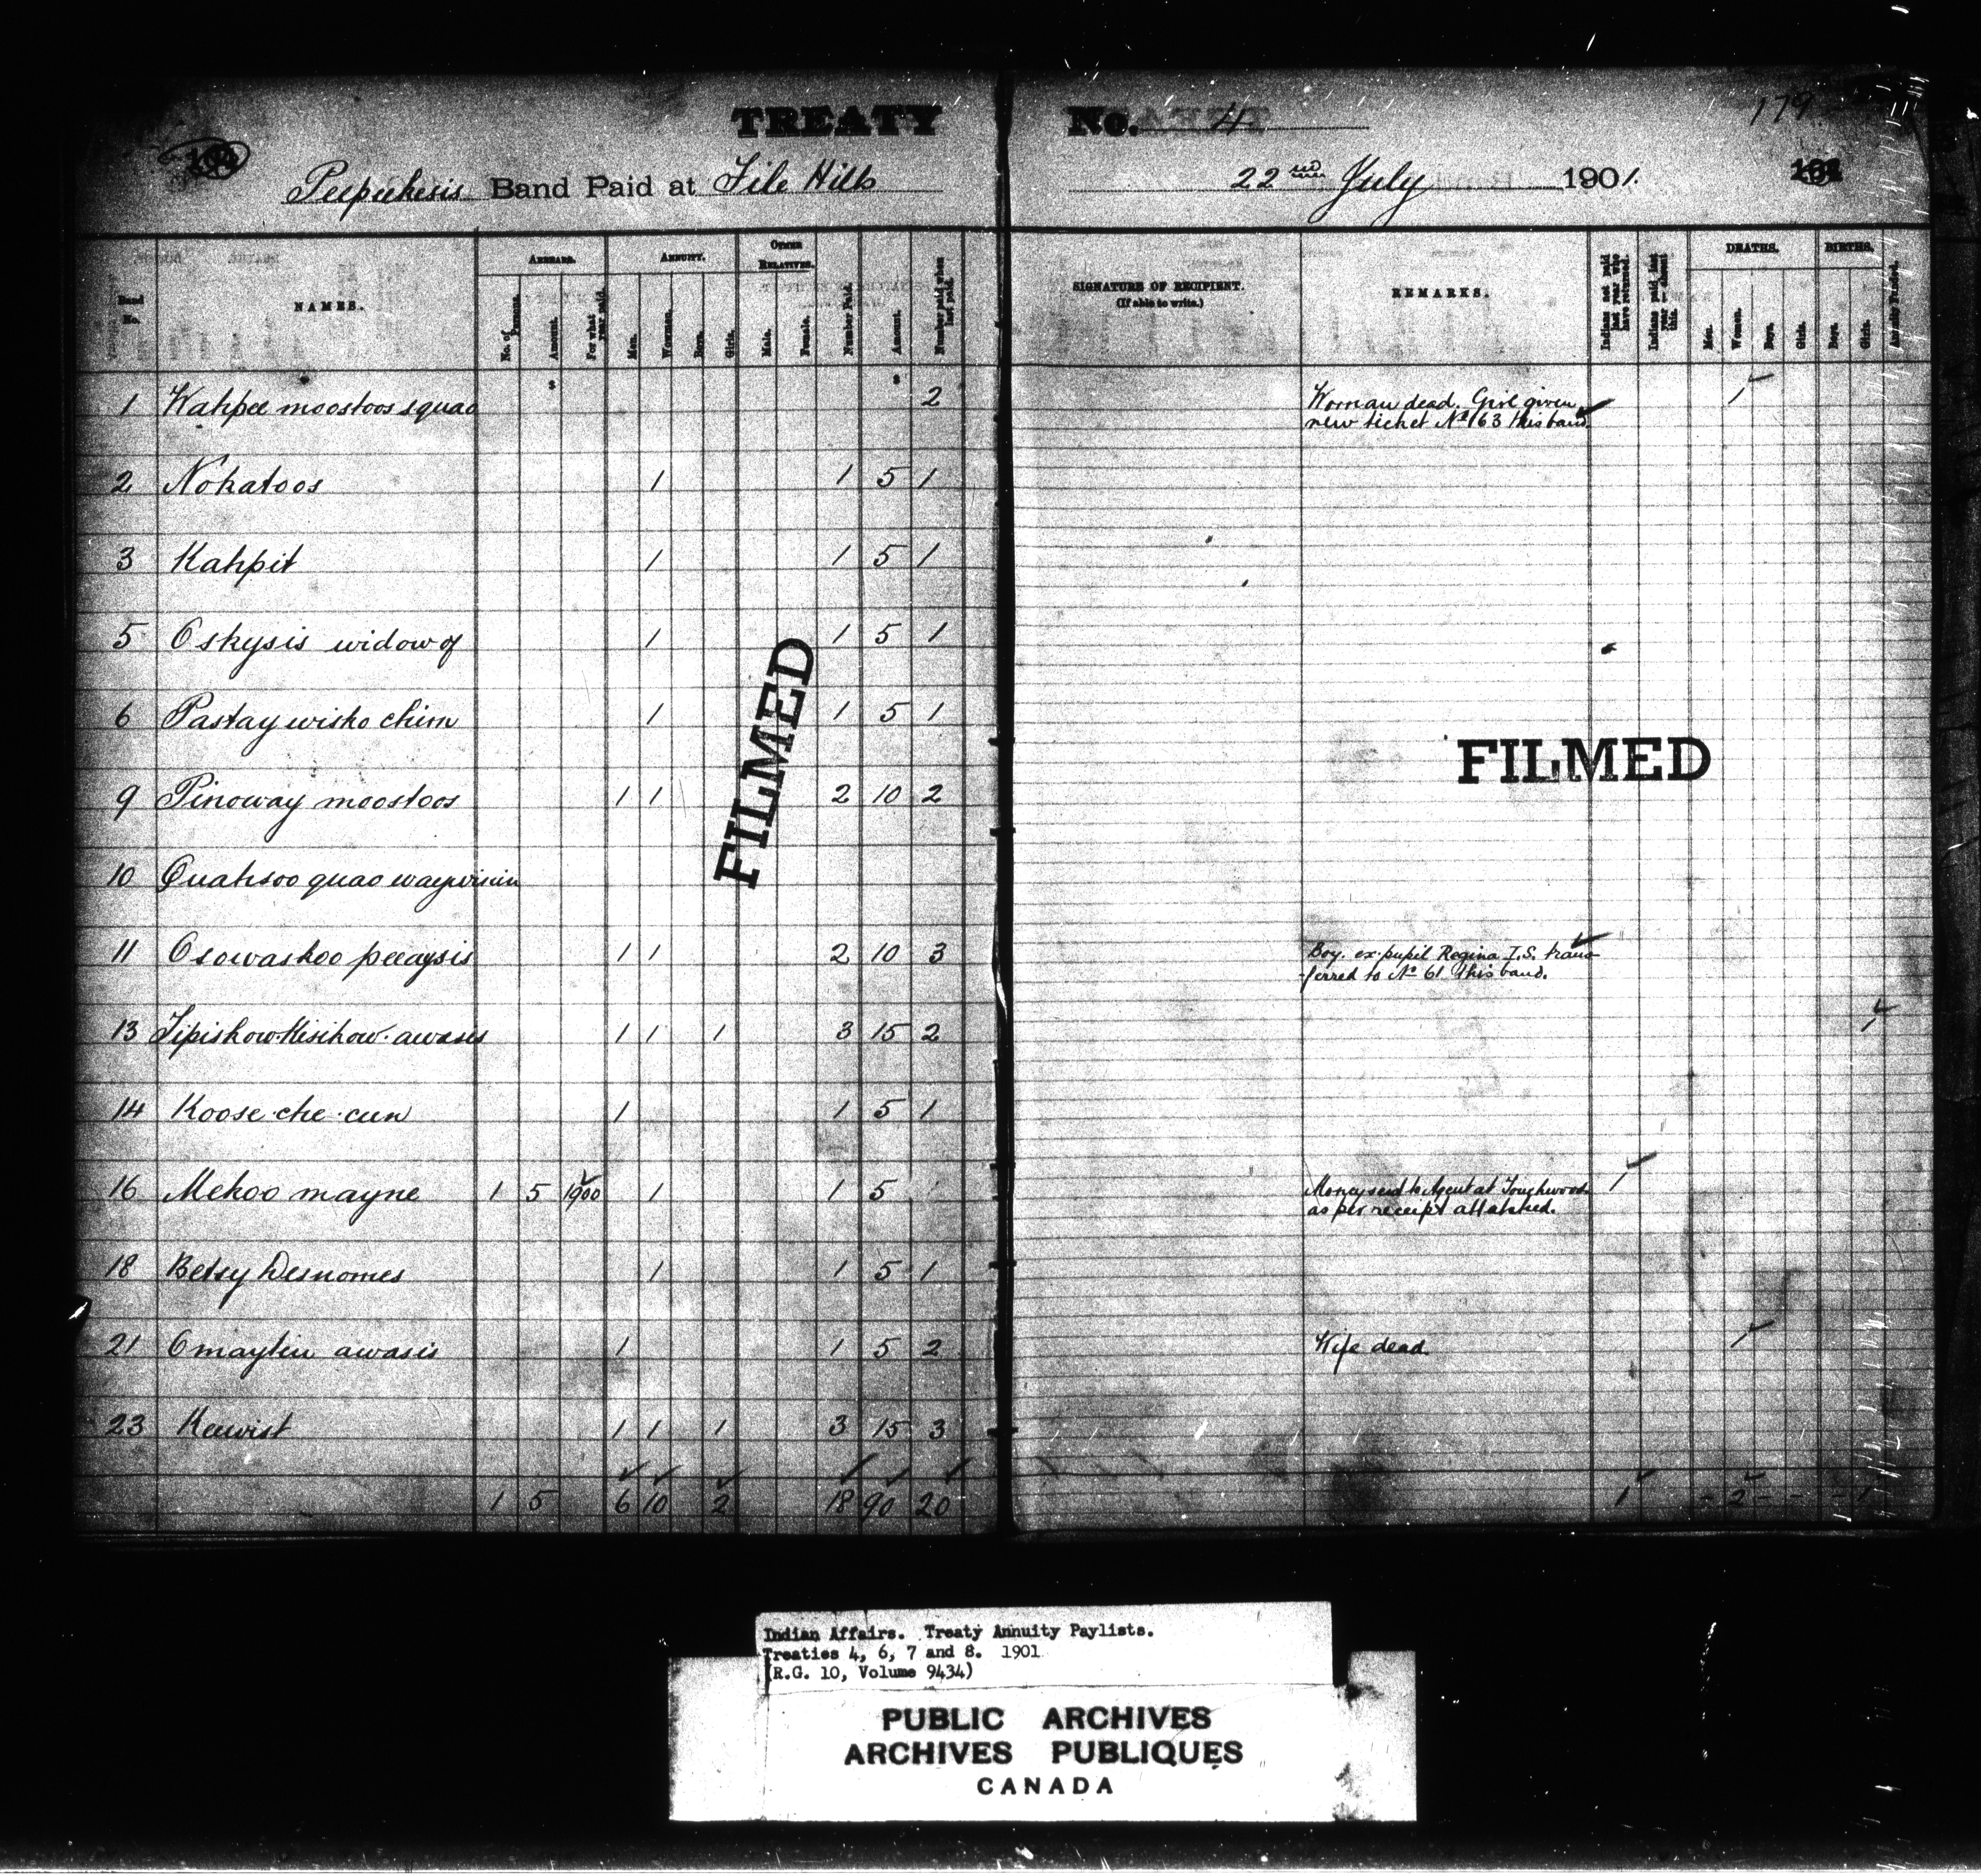 TREATY No. 4
179
Peepeekesis Band Paid at File Hills 22nd July 1901.
Band No.
NAMES.
ARREARS.
No. of Persons.
Amount.
For what year unpaid.
ANNUITY.
Men.
Women.
Boys.
Girls.
OTHER RELATIVES.
Male.
Female.
Number Paid.
Amount.
Number paid when last paid.
SIGNATURE OF RECIPIENT.
(If able to write.)
REMARKS.
Indians not paid last year who have returned.
Indians paid last year — absent this.
DEATHS.
Men.
Women.
Boys.
Girls.
BIRTHS.
Boys.
Girls.
$ $
1 Kahpee moostoos squao 2 Woman dead. Girl given 1
new ticket No 163 this band.
2 Nokatoos 1 1 5 1
3 Kahpit 1 1 5 1
5 Oskysis widow of 1 1 5 1
6 Pastay wisko chim 1 1 5 1
9 Pinoway moostoos 1 1 2 10 2
10 Quahsoo quao waywisin
11 Osowaskoo peeaysis 1 1 2 10 3 Boy. ex-pupil Regina I.S. trans-
-ferred to No 61 this band.
13 Tipiskow-Kisikow-awasis 1 1 1 3 15 2 1
14 Koose-che-cun 1 1 5 1
16 Mekoo mayne 1 5 1900 1 1 5 Money send to Agent at Touchwood 1
as per receipt attatched.
18 Betsy Desnomes 1 1 5 1
21 Omaytin awasis 1 1 5 2 Wife dead. 1
23 Keewist 1 1 1 3 15 3
1 5 6 10 2 18 90 20 1 - 2 - - - 1
FILMED
FILMED
Indian Affairs. Treaty Annuity Paylists.
Treaties 4, 6, 7 and 8. 1901
(R.G. 10, Volume 9434)
PUBLIC ARCHIVES
ARCHIVES PUBLIQUES
CANADA